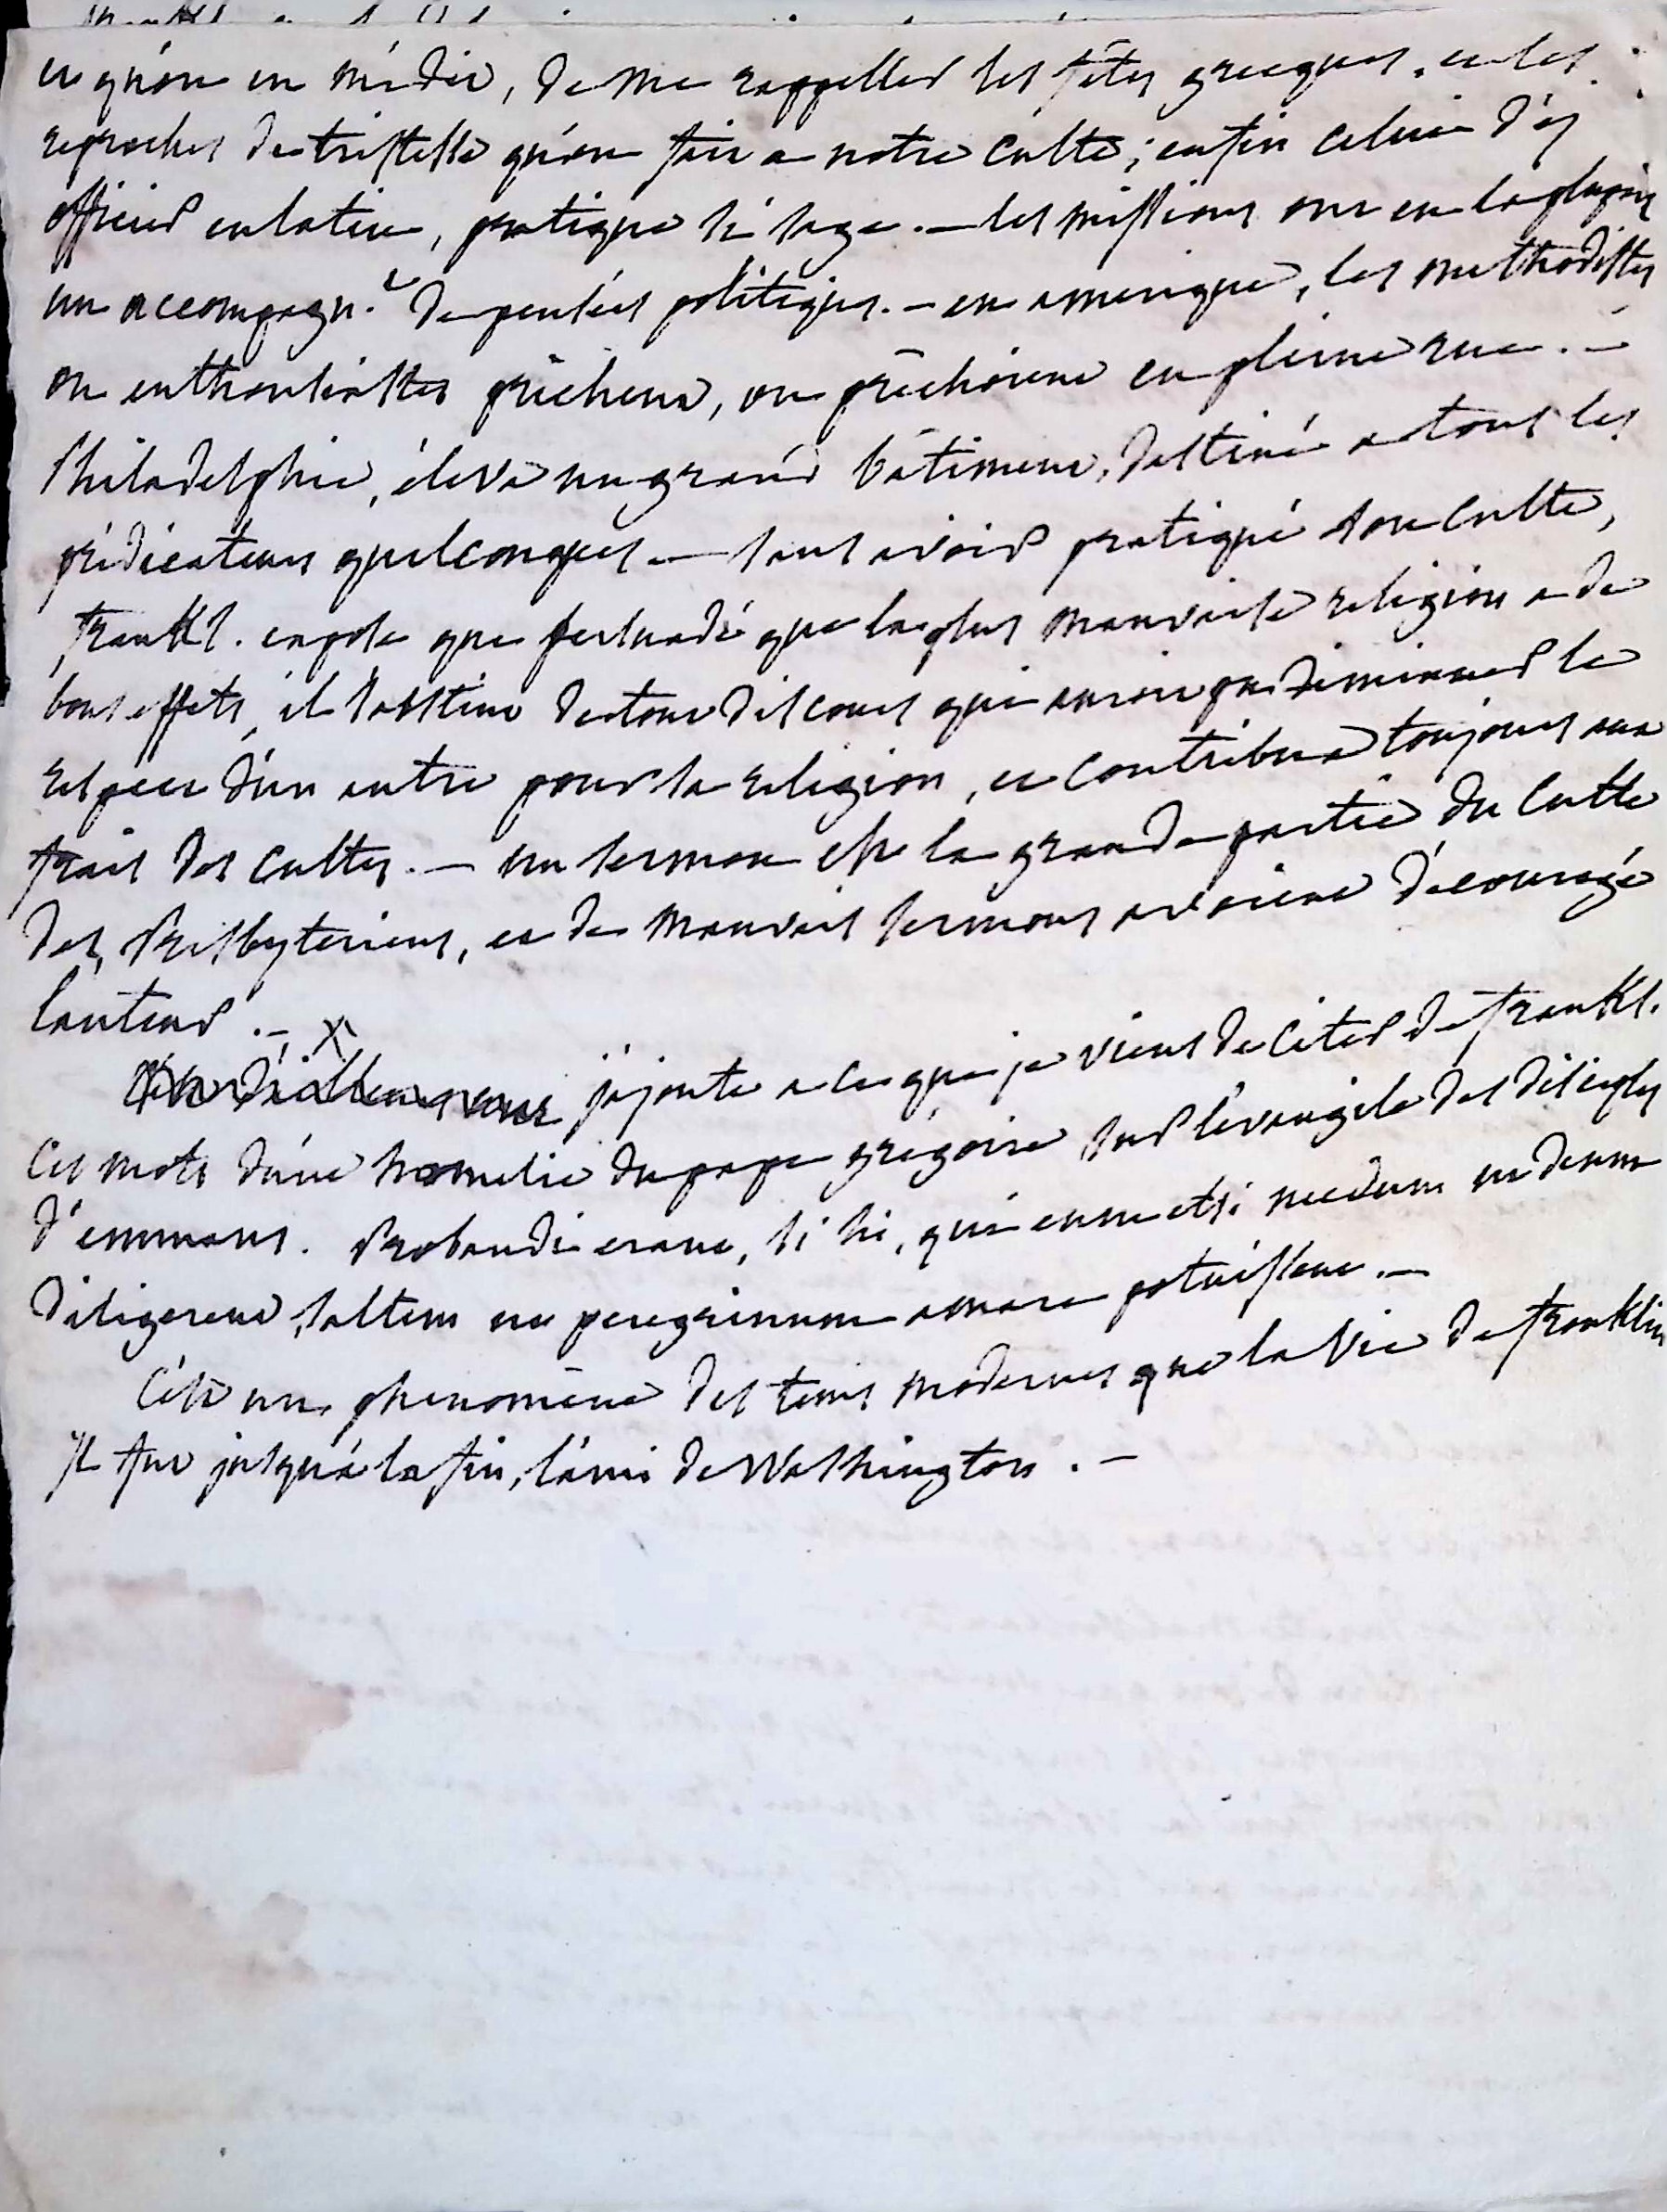 et qu'on en médit, de me rappeller les fêtes grecques, et les
reproches de tristesse qu'on fait a notre culte; enfin celui d'
officier en latin, pratique si sage. — les missions ont eu la plupart
un accompagn.t de pensées politiques. — en amerique, les methodistes
ou enthousiastes prêchent, ou prêchoient en pleine rue. —
Philadelphie, éleva un grand bâtiment, destiné a tous les
prédicateurs quelconques. — sans avoir pratiqué son culte,
frankl. expose que persuadé que la plus mauvaise religion a de
bons effets, il s'abstint de tout discours qui auroit pu diminuer le
respect d'un autre pour sa religion, et contribua toujours aux
frais des cultes. — un sermon est la grande partie du culte
des Presbyteriens, et de mauvais sermons avoient découragé
l'auteur. — X
j'ajoute a ce que je viens de citer de frankl.
ces mots d'une homelie du pape grégoire sur l'évangile des disciples
d'emmaus. Probandi erant, si hi, qui eum etsi necdum ut deum
diligerent, saltem ut peregrinum amare potuissent. —
C'est un phenomène des tems modernes que la vie de franklin
il fut jusqu'à la fin, l'ami de Washington. —